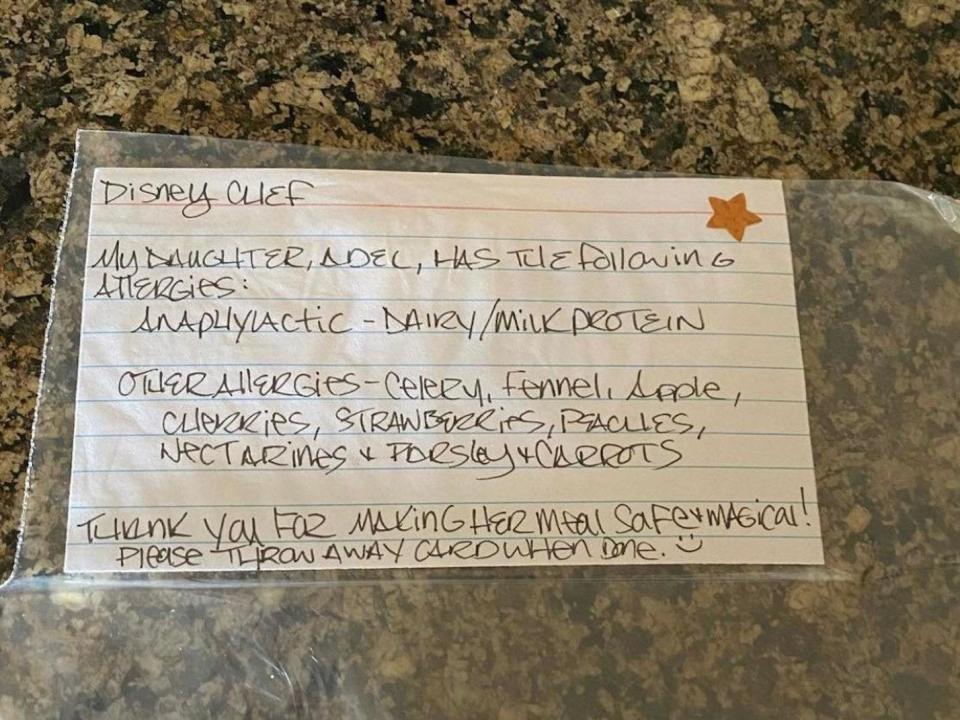 Disney CHEF
MY DAUGHTER, ADEL, HAS THE following
AllERGies:
ANAPHYlActic - DAIRY/Milk PROTEIN
OTHER AllERGies - Celery, Fennel, Apple,
CHERRies, STRAWBERRies, PEACHES,
NECTARines & PARSley & CARROTS
THANK you FOR MAKING HER meal safe & MAGical!
Please THROW AWAY CARD WHEN Done. :)